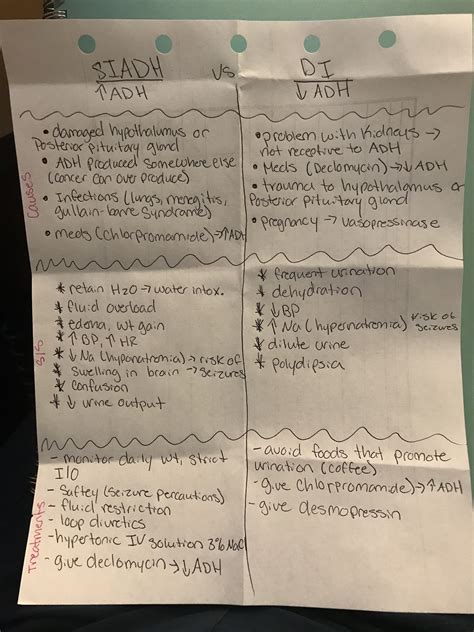 SIADH vs DI
↑ADH ↓ADH
Causes
• damaged hypothalumus or
Posterior pituitary gland
• ADH produced somewhere else
(cancer can over produce)
• Infections (lungs, menegitis,
gullain-barre Syndrome)
• meds (chlorpromamide) → ↑ADH
• problem with Kidneys →
not receptive to ADH
• Meds (Declomycin) → ↓ ADH
• trauma to hypothalamus or
Posterior pituitary gland
• pregnancy → vasopressinase
S/S
* retain H2O → water intox.
* fluid overload
* edema, wt gain
* ↑ BP, ↑ HR
* ↓ Na (hyponatremia) → risk of
* Swelling in brain → seizures
* confusion
* ↓ urine output
* frequent urination
* dehydration
* ↓ BP
* ↑ Na (hypernatremia) risk of
seizures
* dilute urine
* polydipsia
Treatments
- monitor daily wt, strict
I/O
- Saftey (seizure precautions)
- fluid restriction
- loop diuretics
- hypertonic IV solution 3% NaCl
- give declomycin → ↓ ADH
- avoid foods that promote
urination (coffee)
- give Chlorpromamide) → ↑ ADH
- give desmopressin